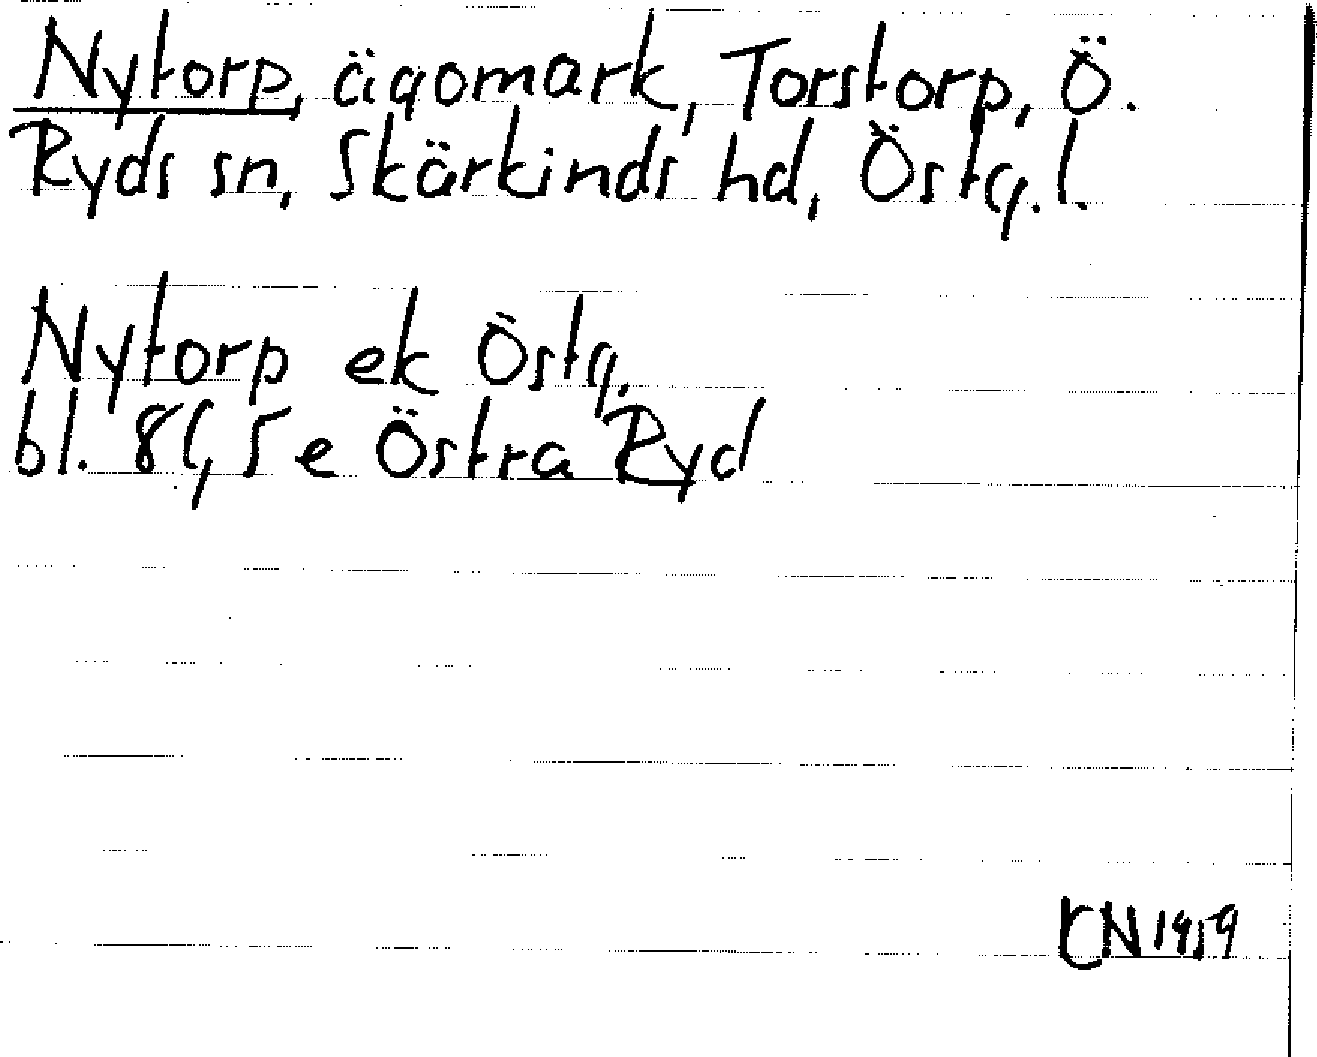 Nytorp, ägomark, Torstorp, Ö.
Ryds sn, Skärkinds hd, Östg. l.
Nytorp ek Östg.
bl. 8f, 5 e Östra Ryd
CN 1959